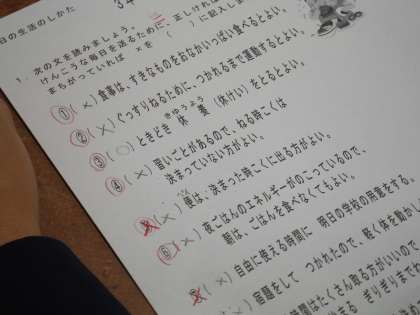 日の生活のしかた
1. 次の文を読みましょう。
けんこうな毎日を送るために、正しければ
まちがっていれば ×を ( ) に記入しま
① (×) 食事は、すきなものをおなかいっぱい食べるとよい。
② (×) ぐっすりねるために、つかれるまで運動するとよい。
③ (○) ときどき 休養(休けい)をとるとよい。
きゅうよう
④ (×) 習いごとがあるので、ねる時こくは
決まっていない方がよい。
(×) 便は、決まった時こくに出る方がよい。
⑥ (×) 夜ごはんのエネルギーがのこっているので、
朝は、ごはんを食べなくてもよい。
(×) 自由に使える時間に 明日の学校の用意をする。
(×) 宿題をして つかれたので、軽く体を動かし
時間はたくさん取る方がいいので
ぎりぎりまで